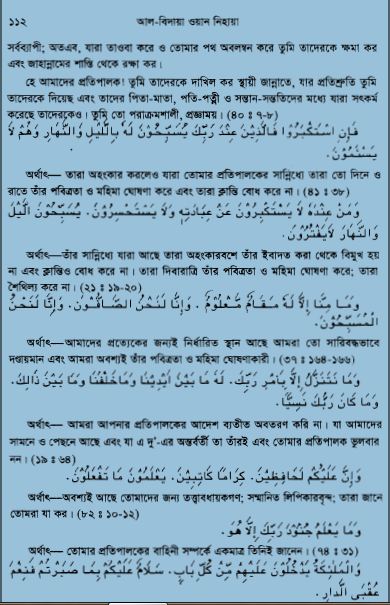 ১১২
আল-বিদায়া ওয়ান নিহায়া
সর্বব্যাপী; অতএব, যারা তাওবা করে ও তোমার পথ অবলম্বন করে তুমি তাদেরকে ক্ষমা কর
এবং জাহান্নামের শাস্তি থেকে রক্ষা কর।
হে আমাদের প্রতিপালক! তুমি তাদেরকে দাখিল কর স্থায়ী জান্নাতে, যার প্রতিশ্রুতি তুমি
তাদেরকে দিয়েছ এবং তাদের পিতা-মাতা, পতি-পত্নী ও সন্তান-সন্ততিদের মধ্যে যারা সৎকর্ম
করেছে তাদেরকেও। তুমি তো পরাক্রমশালী, প্রজ্ঞাময়। (৪০ : ৭-৮)
فَإِنِ اسْتَكْبَرُوْا فَالَّذِيْنَ عِنْدَ رَبِّكَ يُسَبِّحُوْنَ لَهُ بِالَّيْلِ وَالنَّهَارِ وَهُمْ لاَ
يَسْئَمُوْنَ.
অর্থাৎ— তারা অহংকার করলেও যারা তোমার প্রতিপালকের সান্নিধ্যে তারা তো দিনে ও
রাতে তাঁর পবিত্রতা ও মহিমা ঘোষণা করে এবং তারা ক্লান্তি বোধ করে না। (৪১ : ৩৮)
وَمَنْ عِنْدَهُ لاَ يَسْتَكْبِرُوْنَ عَنْ عِبَادَتِهِ وَلاَ يَسْتَحْسِرُوْنَ. يُسَبِّحُوْنَ الَّيْلَ
وَالنَّهَارَ لاَيَفْتُرُوْنَ.
অর্থাৎ—তাঁর সান্নিধ্যে যারা আছে তারা অহংকারবশে তাঁর ইবাদত করা থেকে বিমুখ হয়
না এবং ক্লান্তিও বোধ করে না। তারা দিবারাত্রি তাঁর পবিত্রতা ও মহিমা ঘোষণা করে; তারা
শৈথিল্য করে না। (২১ : ১৯-২০)
وَمَا مِنَّا اِلاَّ لَهُ مَقَامٌ مَّعْلُوْمٌ . وَاِنَّا لَنَحْنُ الصَّافُّوْنَ. وَاِنَّا لَنَحْنُ
الْمُسَبِّحُوْنَ.
অর্থাৎ—আমাদের প্রত্যেকের জন্যই নির্ধারিত স্থান আছে আমরা তো সারিবদ্ধভাবে
দণ্ডায়মান এবং আমরা অবশ্যই তাঁর পবিত্রতা ও মহিমা ঘোষণাকারী। (৩৭ : ১৬৪-১৬৬)
وَمَا نَتَنَزَّلُ اِلاَّ بِاَمْرِ رَبِّكَ. لَهُ مَا بَيْنَ اَيْدِيْنَا وَمَاخَلْفَنَا وَمَا بَيْنَ ذَالِكَ.
وَمَا كَانَ رَبُّكَ نَسِيًّا.
অর্থাৎ— আমরা আপনার প্রতিপালকের আদেশ ব্যতীত অবতরণ করি না। যা আমাদের
সামনে ও পেছনে আছে এবং যা এ দু'-এর অন্তর্বর্তী তা তাঁরই এবং তোমার প্রতিপালক ভুলবার
নন। (১৯ : ৬৪)
وَاِنَّ عَلَيْكُمْ لَحَافِظِيْنَ. كِرَامًا كَاتِبِيْنَ. يَعْلَمُوْنَ مَا تَفْعَلُوْنَ.
অর্থাৎ—অবশ্যই আছে তোমাদের জন্য তত্ত্বাবধায়কগণ; সম্মানিত লিপিকারবৃন্দ; তারা জানে
তোমরা যা কর। (৮২ : ১০-১২)
وَمَا يَعْلَمُ جُنُوْدَ رَبِّكَ اِلاَّ هُوَ.
অর্থাৎ— তোমার প্রতিপালকের বাহিনী সম্পর্কে একমাত্র তিনিই জানেন। (৭৪ : ৩১)
وَالْمَلٰئِكَةُ يَدْخُلُوْنَ عَلَيْهِمْ مِّنْ كُلِّ بَابٍ. سَلاَمٌ عَلَيْكُمْ بِمَا صَبَرْتُمْ فَنِعْمَ
عُقْبَى الدَّارِ.